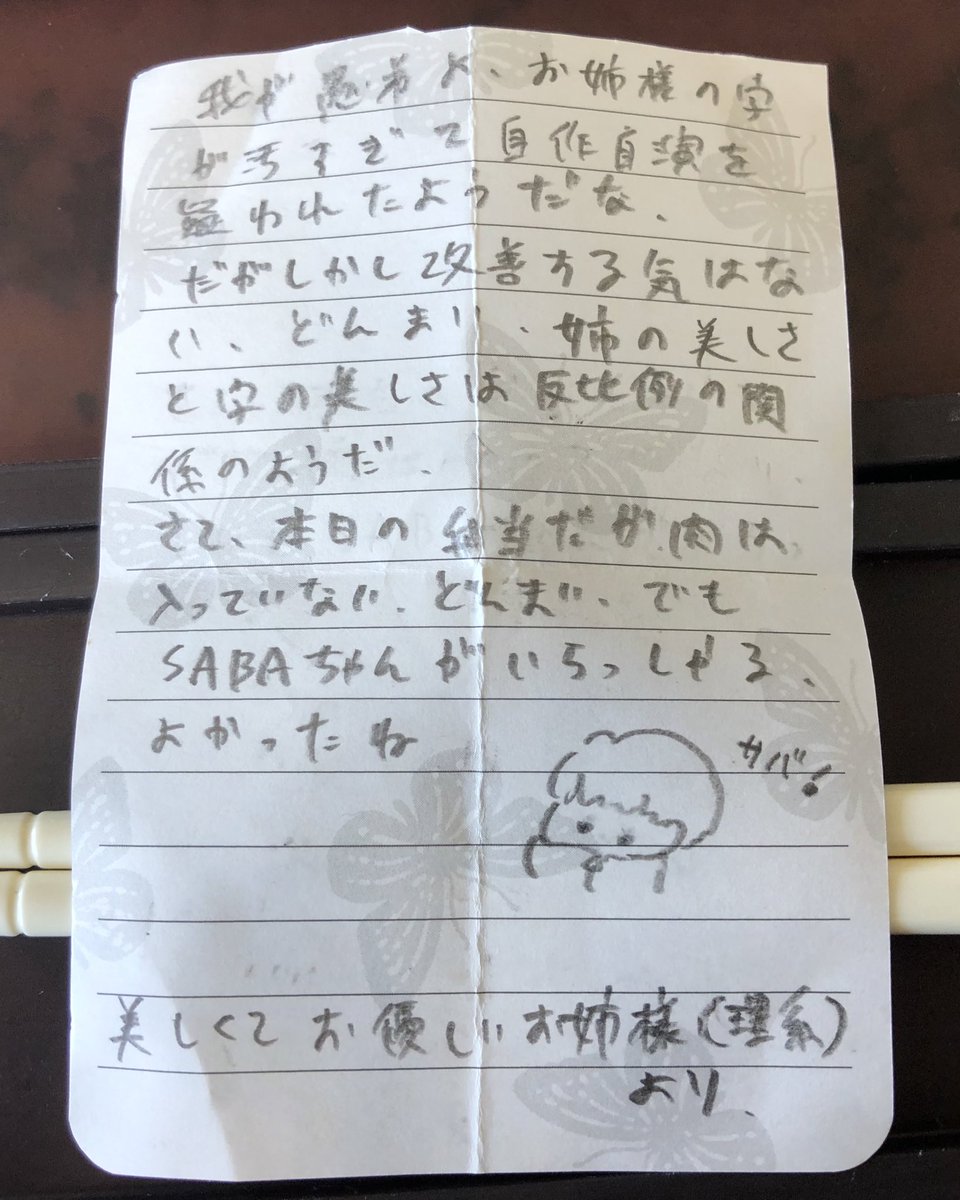 我が愚弟よ、お姉様の字
が汚すぎて自作自演を
疑われたようだな、
だがしかし改善する気はな
い、どんまい、姉の美しさ
と字の美しさは反比例の関
係のようだ、
さて、本日の弁当だが肉は
入っていない、どんまい、でも
SABAちゃんがいらっしゃる、
よかったね
サバ!
美しくてお優しいお姉様(理系)
より、